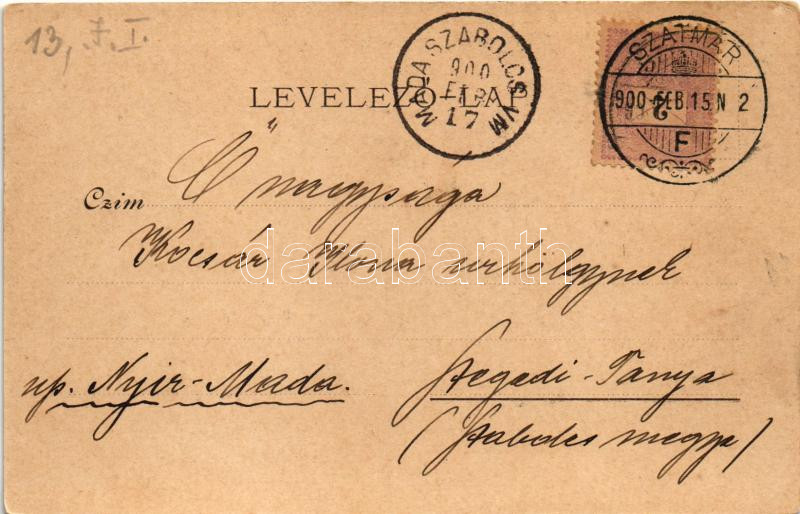 13, F. I.
MADA SZABOLCS VM
900
FEB
17
SZATMÁR
900 FEB. 15. N 2
F
2
LEVELEZŐ-LAP
Czim Ő nagysága
Kocsár Ilona urhölgynek
darabanth
up. Nyir-Mada.
Szegedi-Tanya
(Szabolcs megye)